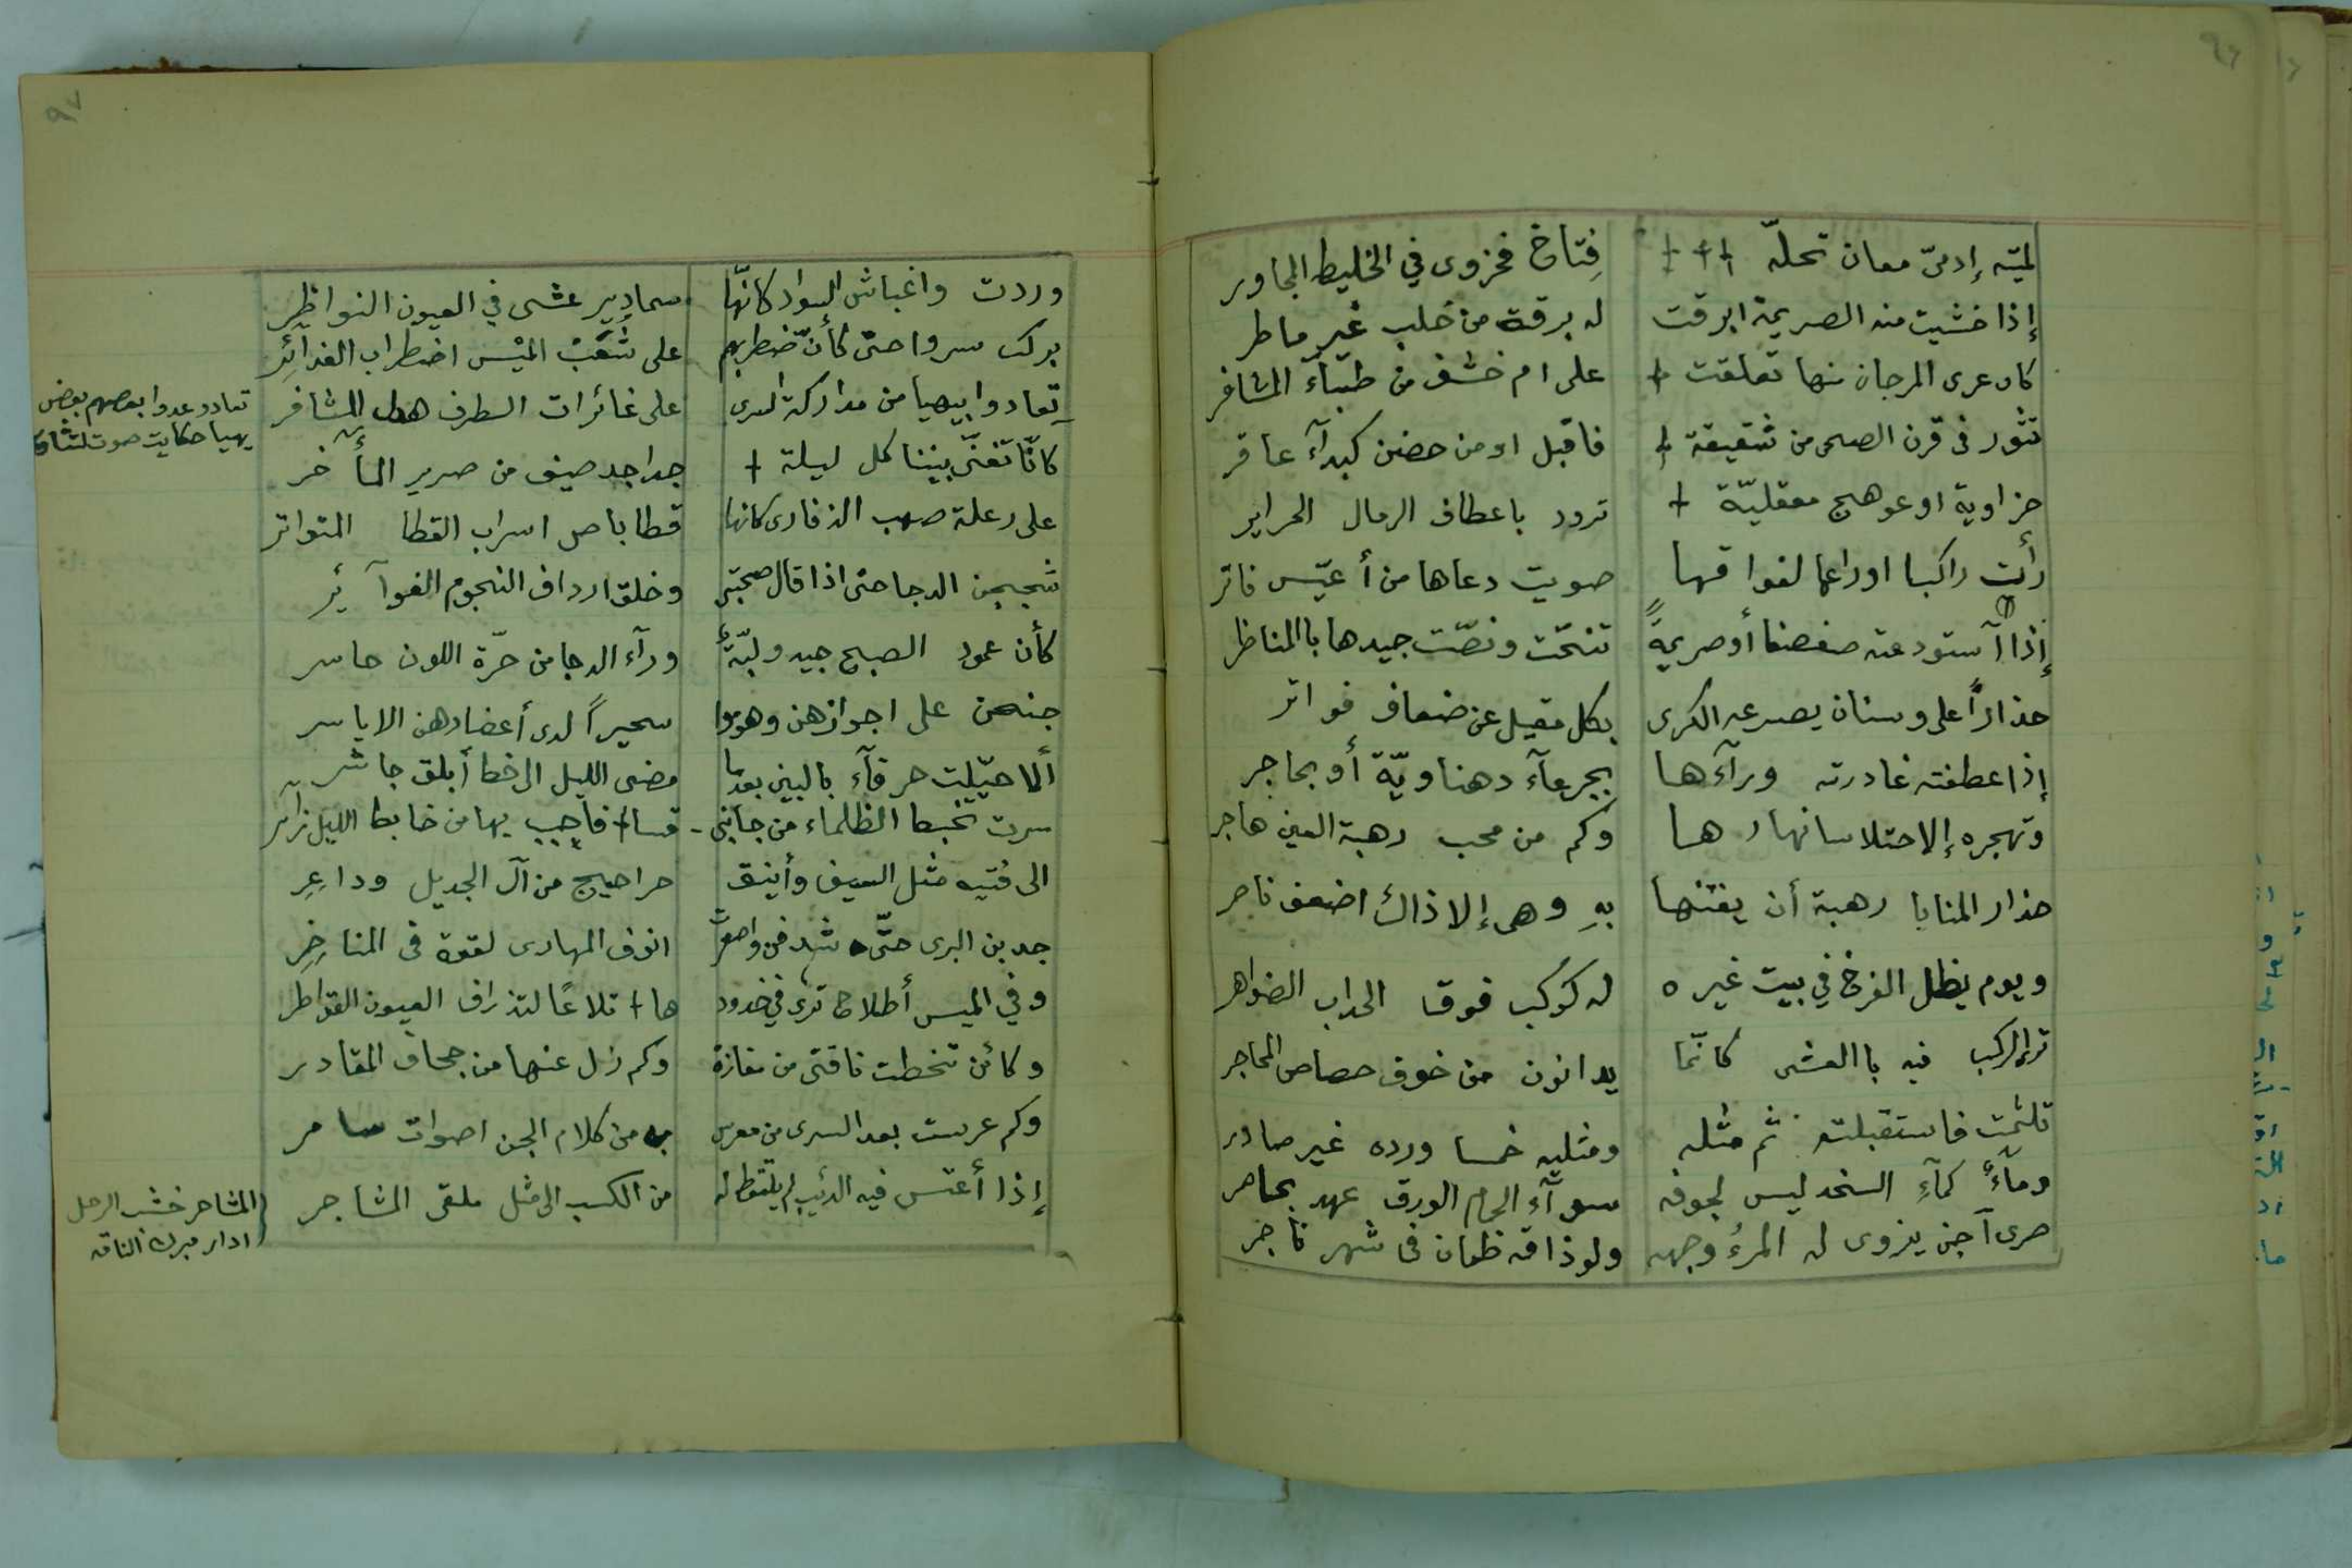 ٩٦
لميّه إدمىّ معان تحلّه فِتاخ فحزوى في الخليط المجاور
إذا خشيت منه الصريمة ابرقت له برقة من خلب غير ماطر
كان عرى المرجان منها تعلقت على ام خشف من ظباء المشافر
تثور فى قرن الضحى من شقيقة فاقبل او من حضن كبدآء عاقر
حزاوية او عوهج معقليّة ترود باعطاف الرمال الحراير
رأت راكبا اوراعها لفواقها صويت دعاها من أعيّس فاتر
إذا آستودعته صفصفا أوصريمةً تنحّت ونصّت جيدها باالمناظر
حذاراً على وسنان يصرعه الكرى بكل مقيل عن ضعاف فواتر
إذا عطفته غادرته ورآءها بجرعآء دهناويّة أو بحاجر
وتهجره إلا اختلاسا نهارها وكم من محب رهبة العين هاجر
حذار المنايا رهبة أن يفتنها بهِ وهى إلا ذاك اضعف ناصر
ويوم يظل الفرخ في بيت غيره له كوكب فوق الحداب الظواهر
ترى الركب فيه باالعشى كانّما يدانون من خوف خصاص المحاجر
تلثمت فاستقبلته ثم مثله ومثليه خمسا ورده غير صادر
ومآءٌ كمآءِ السخد ليس لجوفه سوآءِ الحمام الورق عهد بحاضر
صرى آجن يزوى له المرءُ وجهه ولو ذاقه ظمان فى شهر ناجر
٩٧
وردت واغباش السواد كانّها سمادير عشى في العيون النواظِر
بركب سروا حتى كأنّ ضطربهم على شُعَبْ الميْس اضطراب الغدائِر
تعادوا بيهيا من مداركة السرى على غائرات الطرف هدل المشافر
كانّا تغنّى بيننا كل ليلة جداجد صيف من صرير المأخر
على رعلة صهب الذفارى كانها قطا باص اسراب القطا المتواتر
شججن الدجا حتى اذا قال صحبتى وخلق ارداف النجوم الغوآئر
كأن عمود الصبح جيد ولبّةٌ ورآء الدجا من حرّة اللون حاسر
جنحن على اجوازهن وهوموا سحيراً لدى أعضادهن الاياسر
ألا خيّلت خرقآء بالبين بعدما مضى الليل الا خط أبلق جاشر
سرت تخبط الظلماء من جانبى قسا فأحبب بها من خابط الليل زآئر
الى فتيه مثل السيف وأينق حراجيج من آل الجديل وداعِرِ
جدبن البرى حتّى شدفن واصعرت انوف المهارى لقوة فى المناخِرِ
وفي الميس أطلاح ترى في خدودها تلاعًا لتذراف العيون القواطر
وكائن تخطت ناقتى من مفازة وكم زل عنها من جحاف المقادر
وكم عرست بعد السرى من معرس به من كلام الجن اصوات سامر
إذا أعتس فيه الذئيب لم يلتقط له من الكسب الى مثل ملقى المشاجر
تعادو عدوا بعضهم بعض
يهيا حكايت صوت
المشاجر خشب الرحل
ادار مبرك الناقه